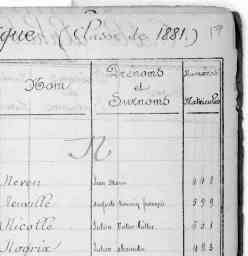 que (Classe de 1881.)
Nom
Prénoms et Surnoms
Numéros Matricules
N
Neven Jean Marie 448
Neuville Auguste François 599
Nicolle Julien Victor 551
Julien Alexandre 483